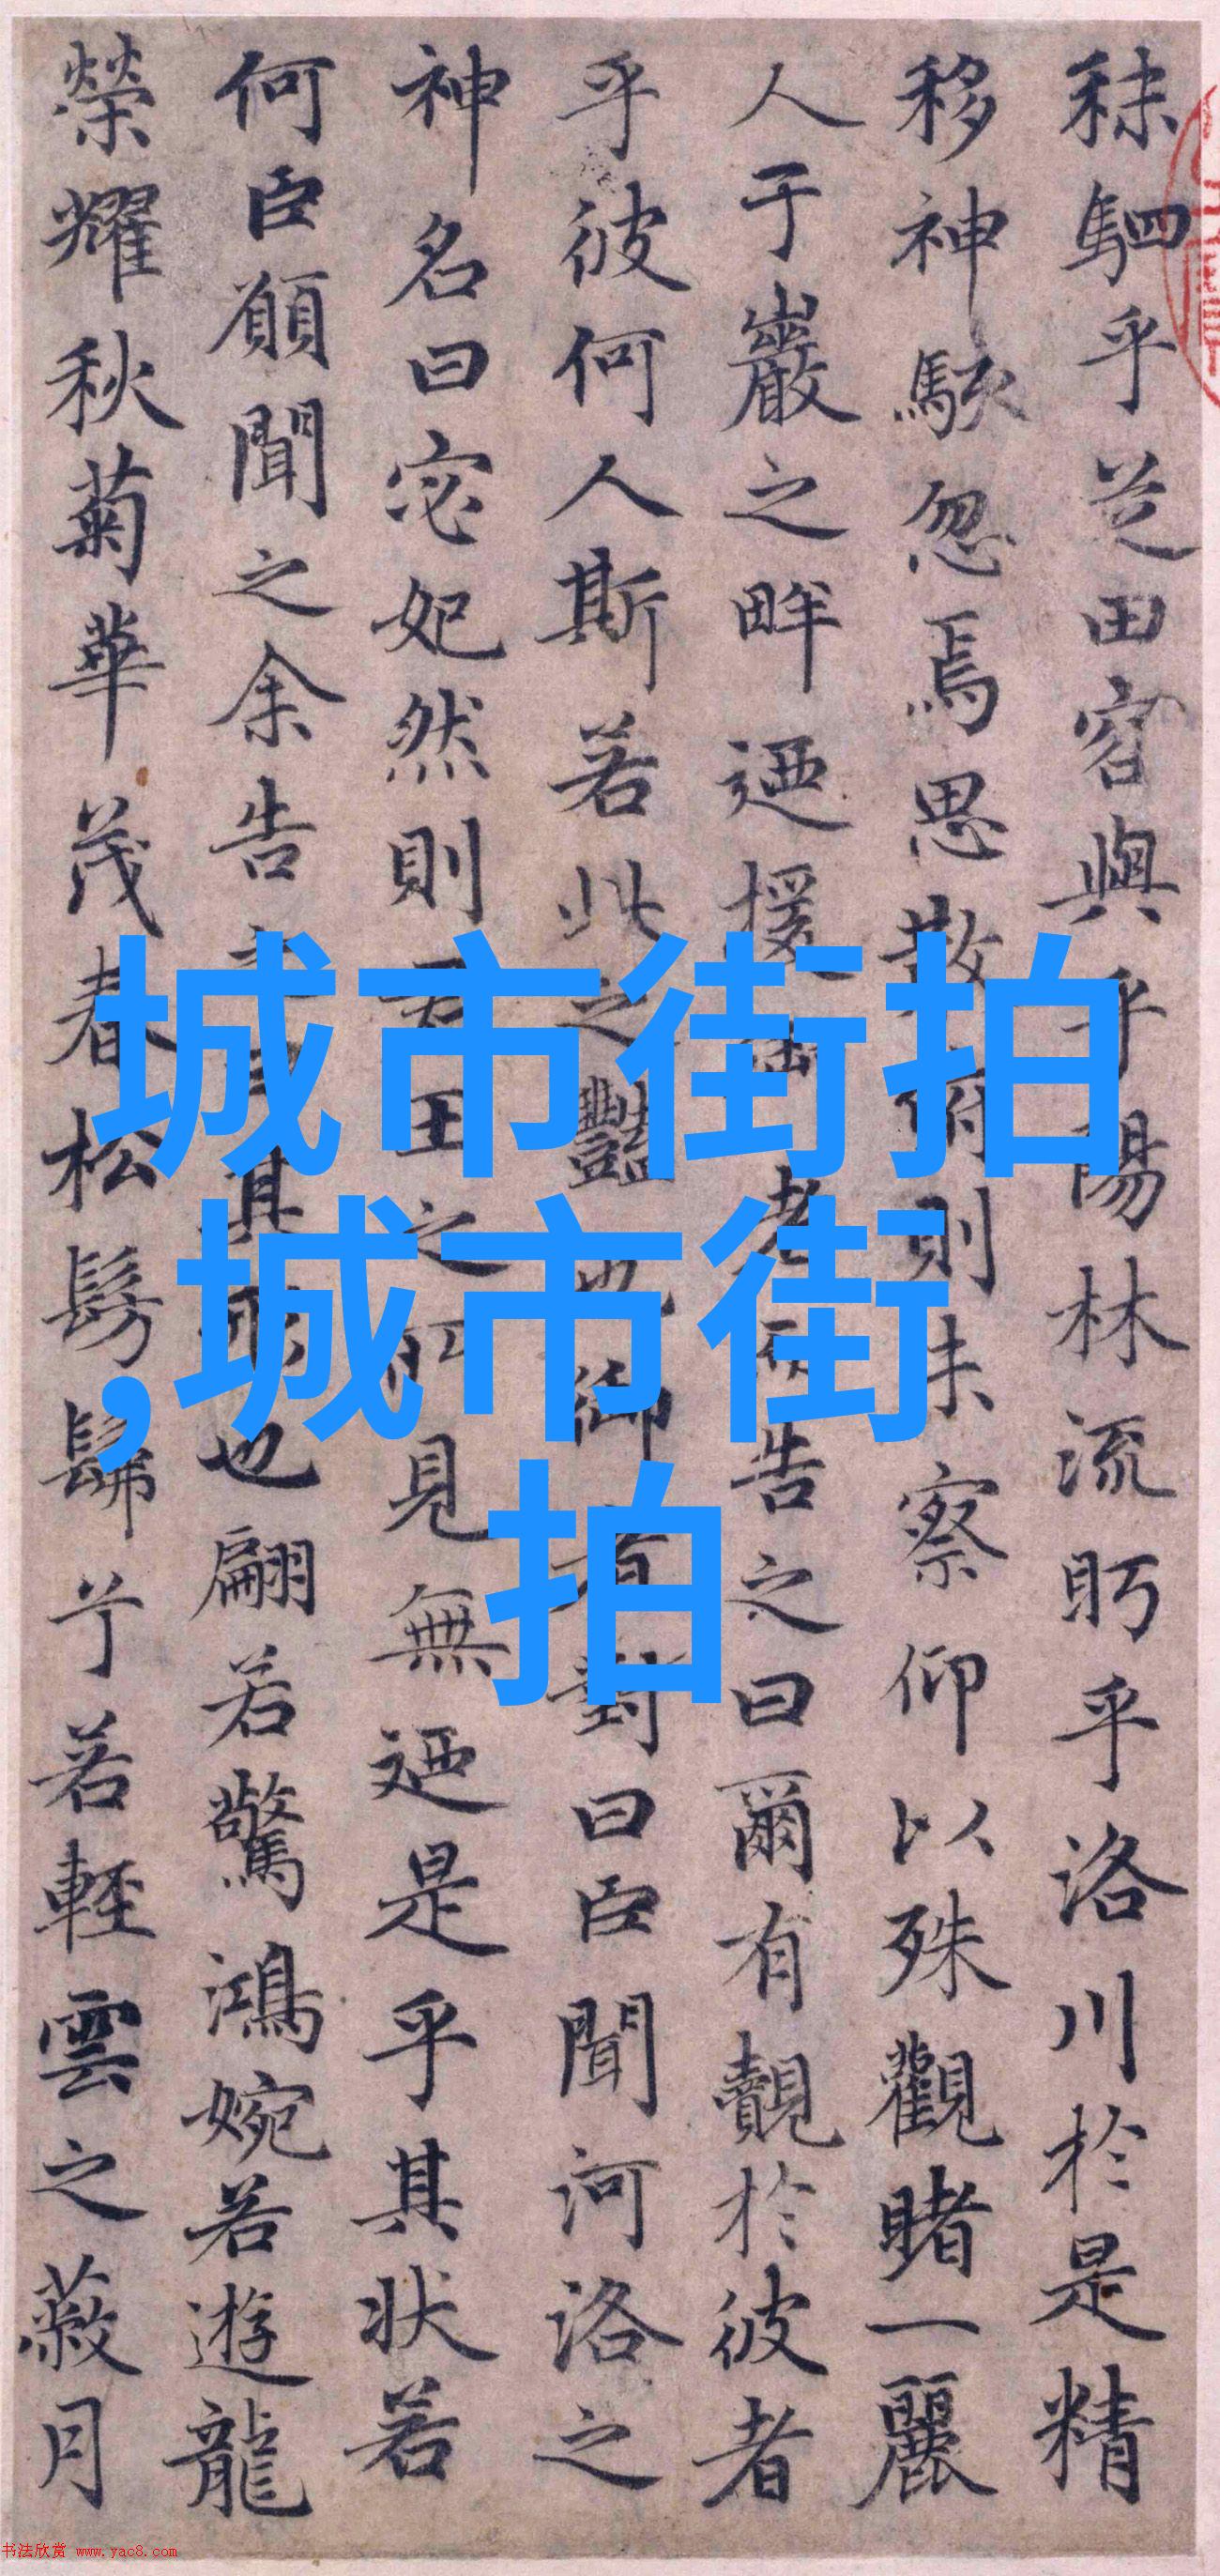 秣駟乎芝田容與乎陽林流眄乎洛川於是精
移神駭忽焉思散俯則未察仰以殊觀睹一麗
人于巖之畔迺援御者而告之曰爾有覿於彼者
乎彼何人斯若此之豔也御者對曰臣聞河洛之
神名曰宓妃然則君王之所見無迺是乎其状若
何臣願聞之余告之曰其形也翩若驚鴻婉若遊龍
榮耀秋菊華茂春松髣髴兮若輕雲之蔽月
城市街拍
,城市街
拍
书法欣赏 www.yac8.com